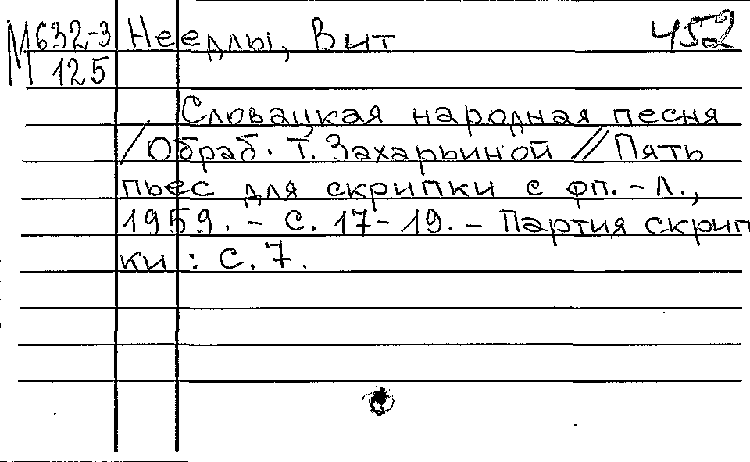 М632-3 Неедлы, Вит 452
125
Словацкая народная песня
/Обраб. Т. Захарьиной // Пять
пьес для скрипки с фп. - Л.,
1959. - С. 17-19. - Партия скрип
ки : С. 7.